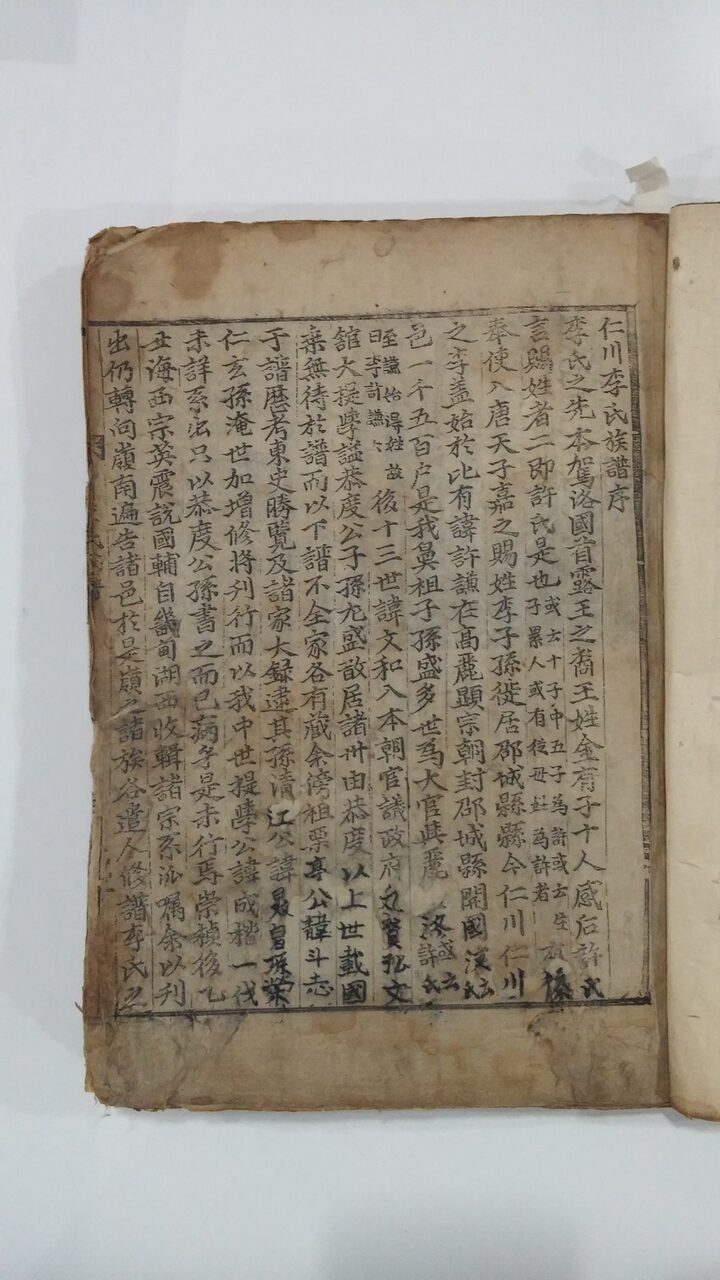 仁川李氏族譜序
李氏之先本駕洛國首露王之裔王姓金有子十人感后許氏
言賜姓者二即許氏是也或云十子中五子為許或云生子累人或有從母姓為許者
奉使入唐天子嘉之賜姓李子孫徙居邵城縣縣今仁川仁川
之李盖始於此有諱許謙在高麗顯宗朝封邵城縣開國
邑一千五百户是我鼻祖子孫盛多世為大官其麗
至謙始得姓故曰李許謙後十三世諱文和入本朝官議政府賛弘文
舘大提學謚恭度公子孫尤盛散居諸州由恭度以上世載國
乘無待於譜而以下譜不全家各有藏余傍祖栗亭公諱斗志
于譜歷考東史勝覧及諸家大録逮其孫清江公諱
仁玄孫淹世加增修將刋行而以我中世提學公諱成楷一代
未詳系出只以恭度公孫書之而已病矛是未行焉崇禎後
丑海西宗英震説國輔自畿甸湖西收輯諸宗系嘱余以刋
出仍轉向嶺南遍告諸邑於是嶺之諸族各遣人修譜李氏之